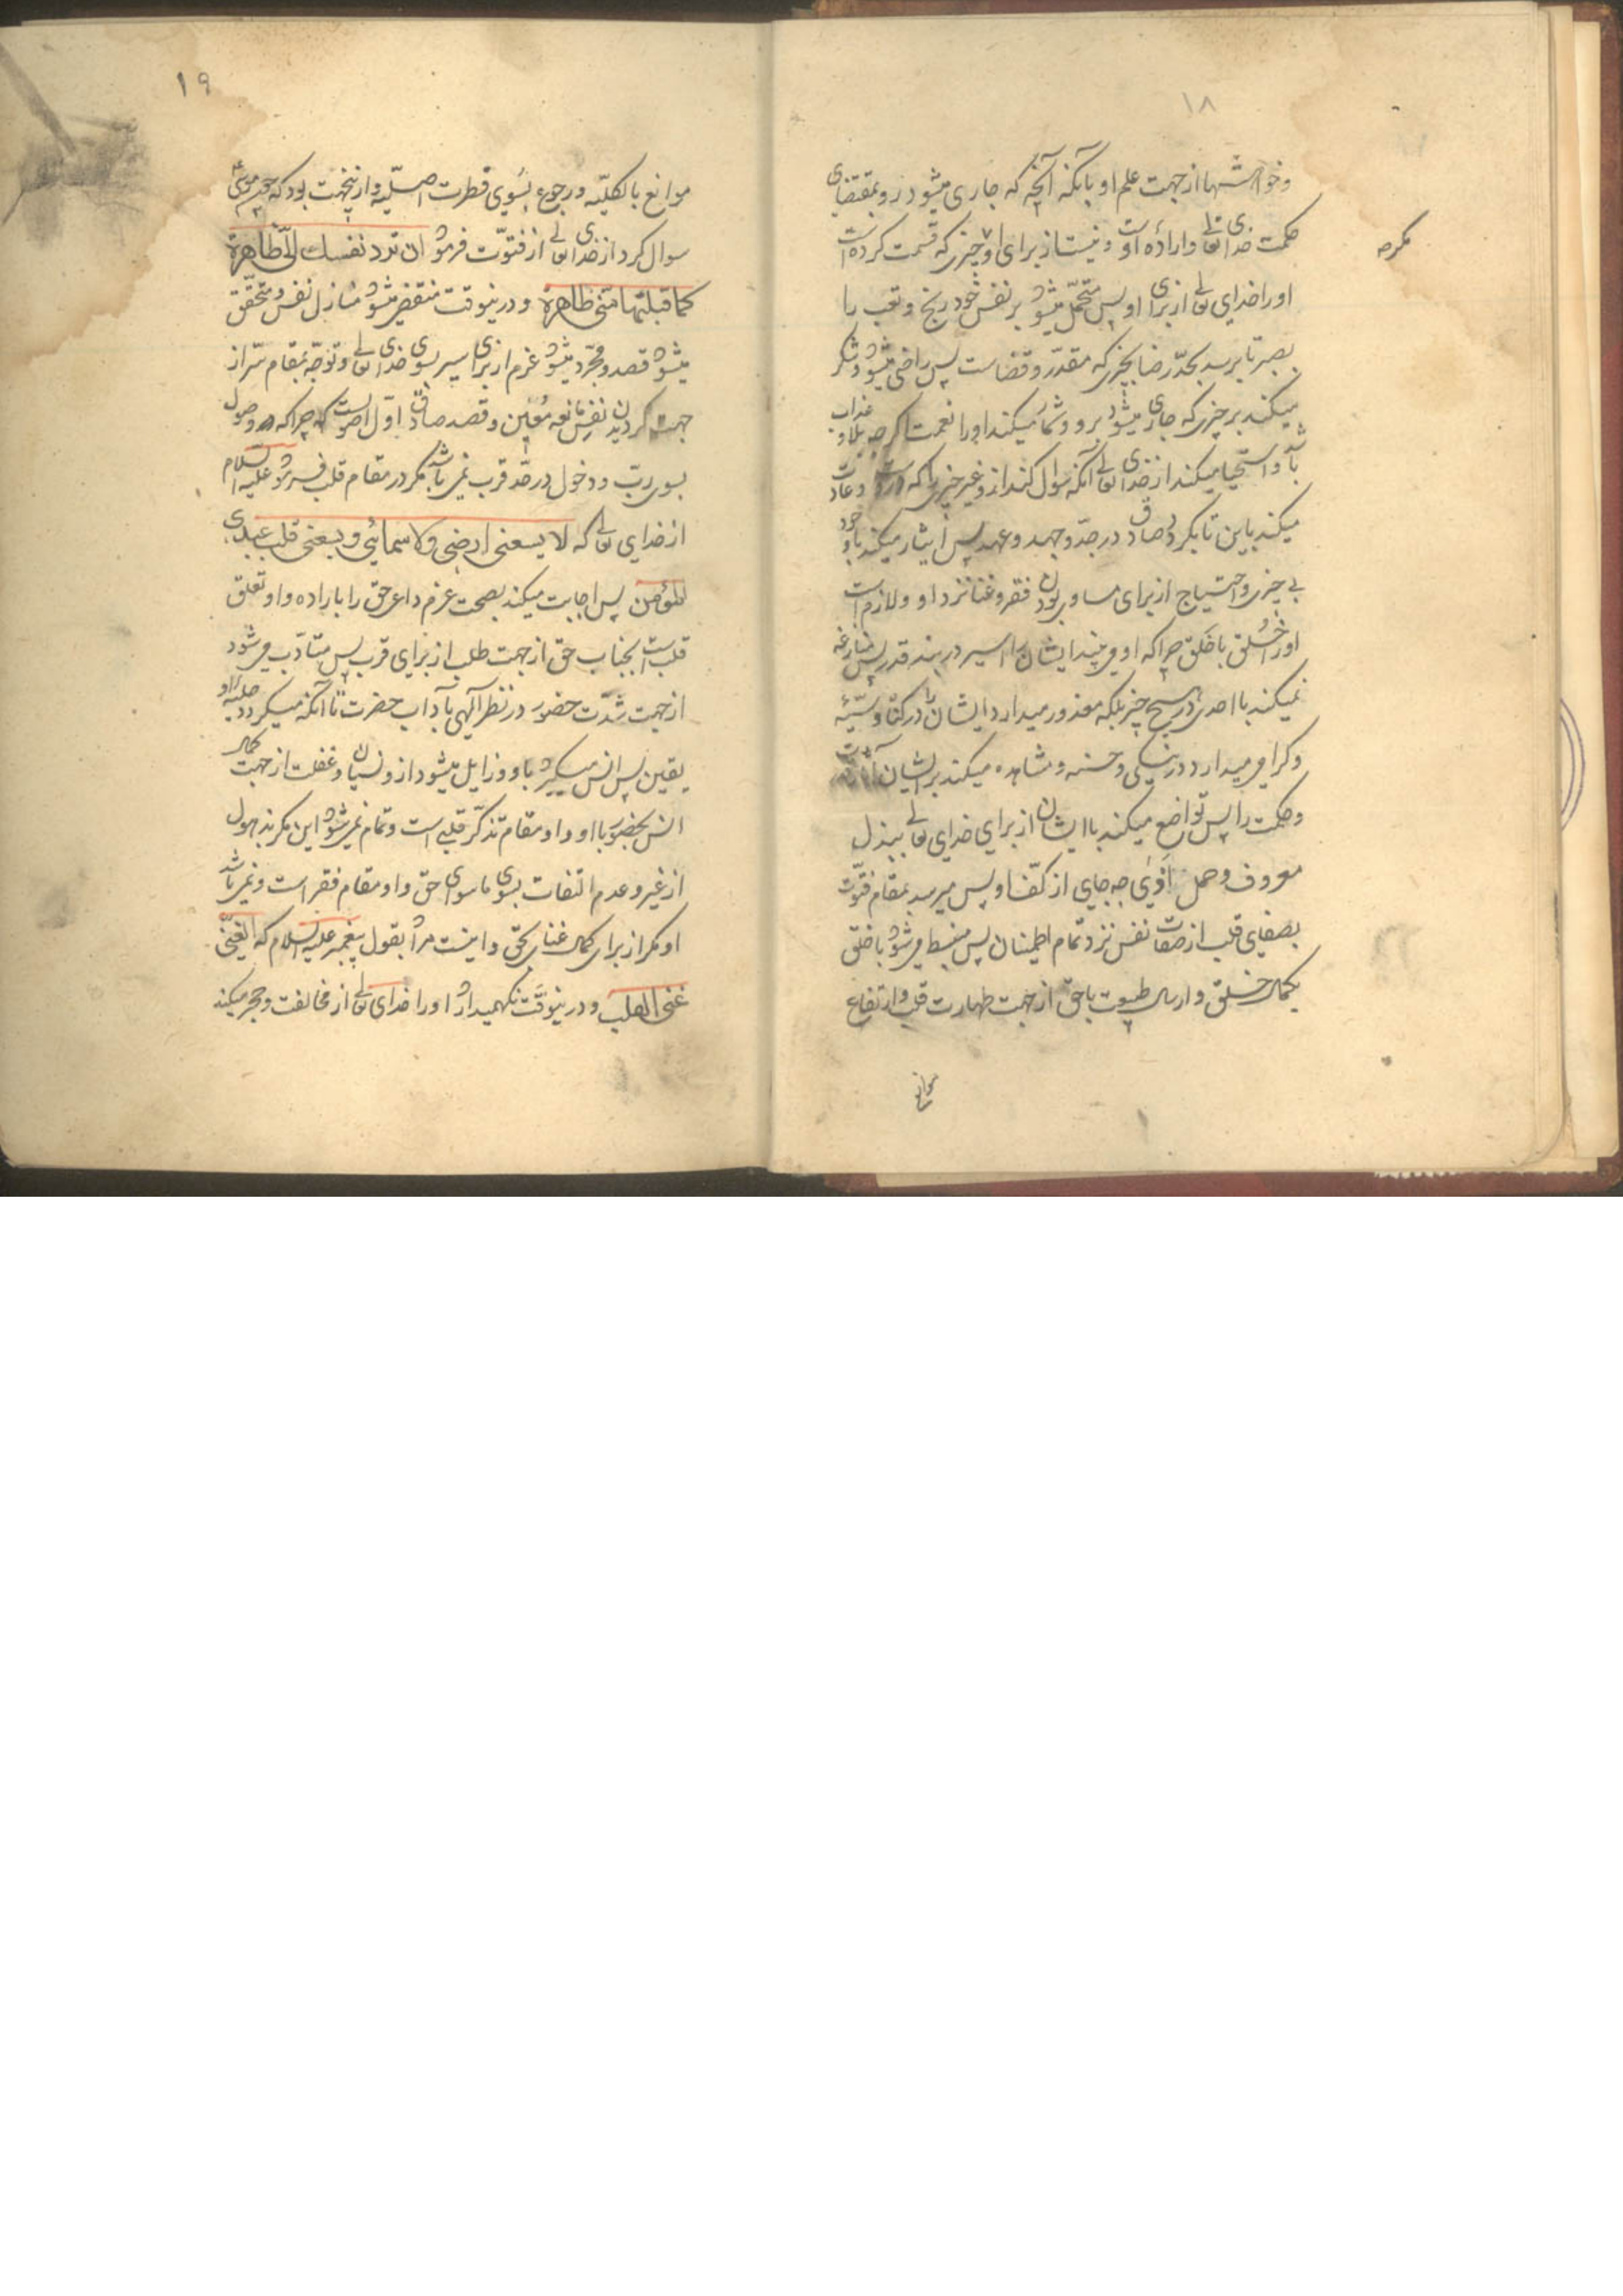 ۱۸
وخواهشها از جهت علم او بانکه آنچه که جاری میشود برو بمقتضای
حکمت خدای تعالی واراده اوست ونیست از برای او چیزی که قسمت کرده است
مگر چه
اورا خدای تعالی از برای او پس متحمل میشود بر نفس خود رنج وتعب را
بصبر تا برسد بحد رضا بچیزی که مقدر وقضاست پس راضی میشود وشکر
میکند بر چیزی که جاری میشود برو وشمار میکند اورا نعمت اگرچه بلا وعذاب
باشد واستحیا میکند از خدای تعالی آنکه سوال کند ازو غیر چیزی را که وعادت
میکند باین تا بگردد صادق در جد وجهد وعهد پس ایثار میکند باوجود
بی چیزی واحتیاج از برای مساوی بودن فقر وغنا نزد او ولازم است
اورا خُلق با خَلق چراکه او می بیند ایشان را اسیر در بند قدر پس منازعه
نمیکند با احدی در هیچ چیز بلکه معذور میدارد ایشان را در گناه وسیّئه
وگرامی میدارد در نیکی وحسنه ومشاهده میکند بر ایشان
وحکمت را پس تواضع میکند با ایشان از برای خدای تعالی ببذل
معروف وحمل اذی چه جای از کفّ او پس میرسد بمقام فتوّت
بصفای قلب از صفات نفس نزد تمام اطمینان پس منبسط می شود با خلق
بکمال خلق وارسال طبیعت با حق از جهت طهارت قلب وارتفاع
موانع
۱۹
موانع بالکلیّه ورجوع بسوی فطرت اصلیّه واز ینجهت بود که چون موسی ع
سوال کرد از خدای تعالی از فتوّت فرمود ان تردّ نفسك الیّ ظاهرة
کما قبلتها منّی ظاهرة ودر ینوقت منقضی میشود منازل نفس ومتحقق
میشود قصد ومجرد میشود عزم از برای سیر بسوی خدای تعالی وتوجّه بمقام سرّ از
جهت گردیدن نفس مانعه مُعین وقصد صادق اوّل اصولست چراکه وصول
بسوی ربّ ودخول در حد قرب نمی باشد مگر در مقام قلب فرمود علیه السلام
از خدای تعالی که لا یسعنی ارضی ولا سمائی ویسعنی قلب عبدی
المؤمن پس اجابت میکند بصحت عزم داعی حق را باراده واو تعلّق
قلبست بجناب حق از جهت طلب از برای قرب پس متأدّب می شود
از جهت شدّت حضور در نظر آلهی بآداب حضرت تا آنکه میگردد حلیه او
یقین پس انس میگیرد باو وزایل میشود ازو نسیان وغفلت از جهت کمال
انس بحضور با او واو مقام تذکّر قلبی است وتمام نمی شود این مگر بذهول
از غیر وعدم التفات بسوی ماسوای حق واو مقام فقر است ونمی باشد
او مگر از برای کمال غنای بحق واینست مراد بقول پیغمبر علیه السلام که الغنی
غنی القلب ودر ینوقت نگهمیدارد اورا خدای تعالی از مخالفت وحجر میکند